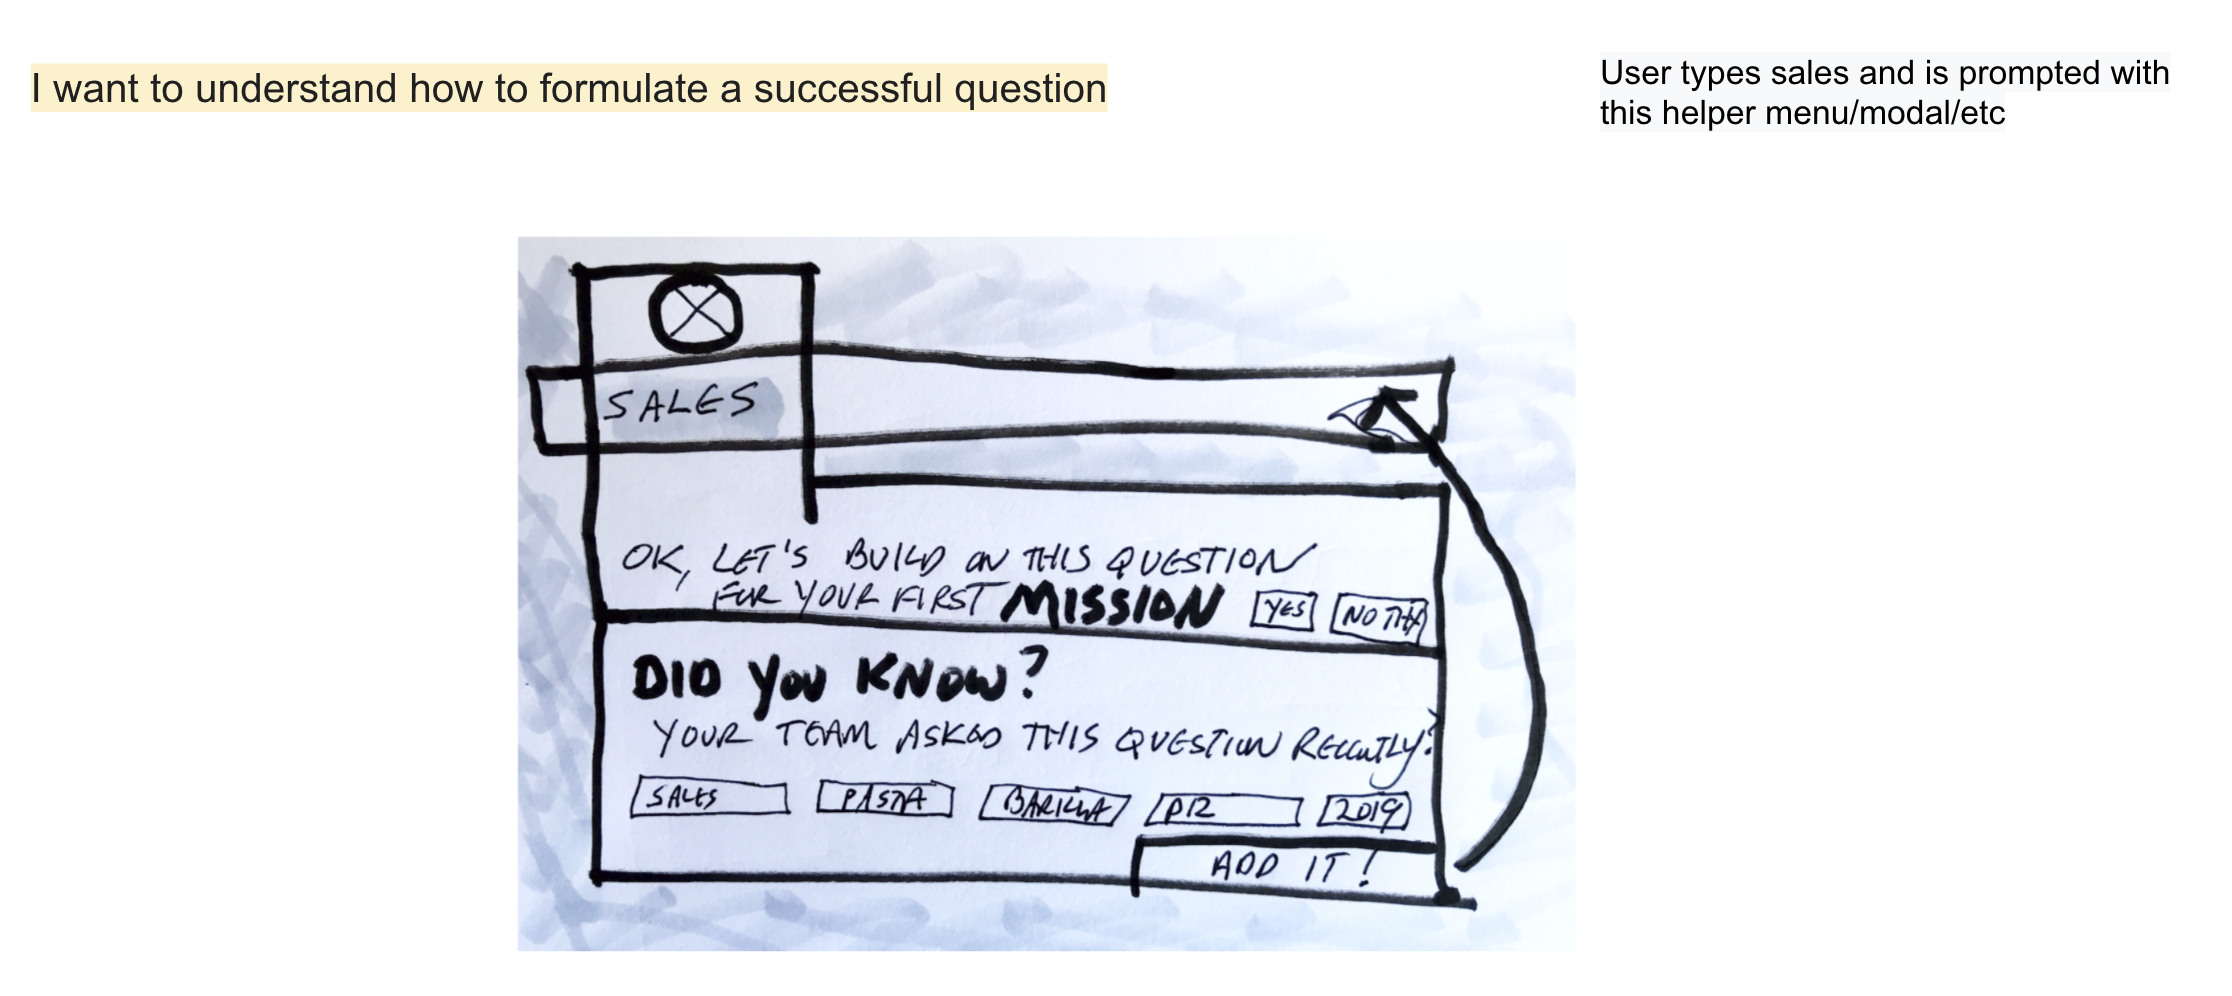 I want to understand how to formulate a successful question
User types sales and is prompted with
this helper menu/modal/etc
SALES
OK, LET'S BUILD ON THIS QUESTION
FOR YOUR FIRST MISSION YES NO THX
DID YOU KNOW?
YOUR TEAM ASKED THIS QUESTION RECENTLY?
SALES PASTA BARILLA P12 2019
ADD IT!